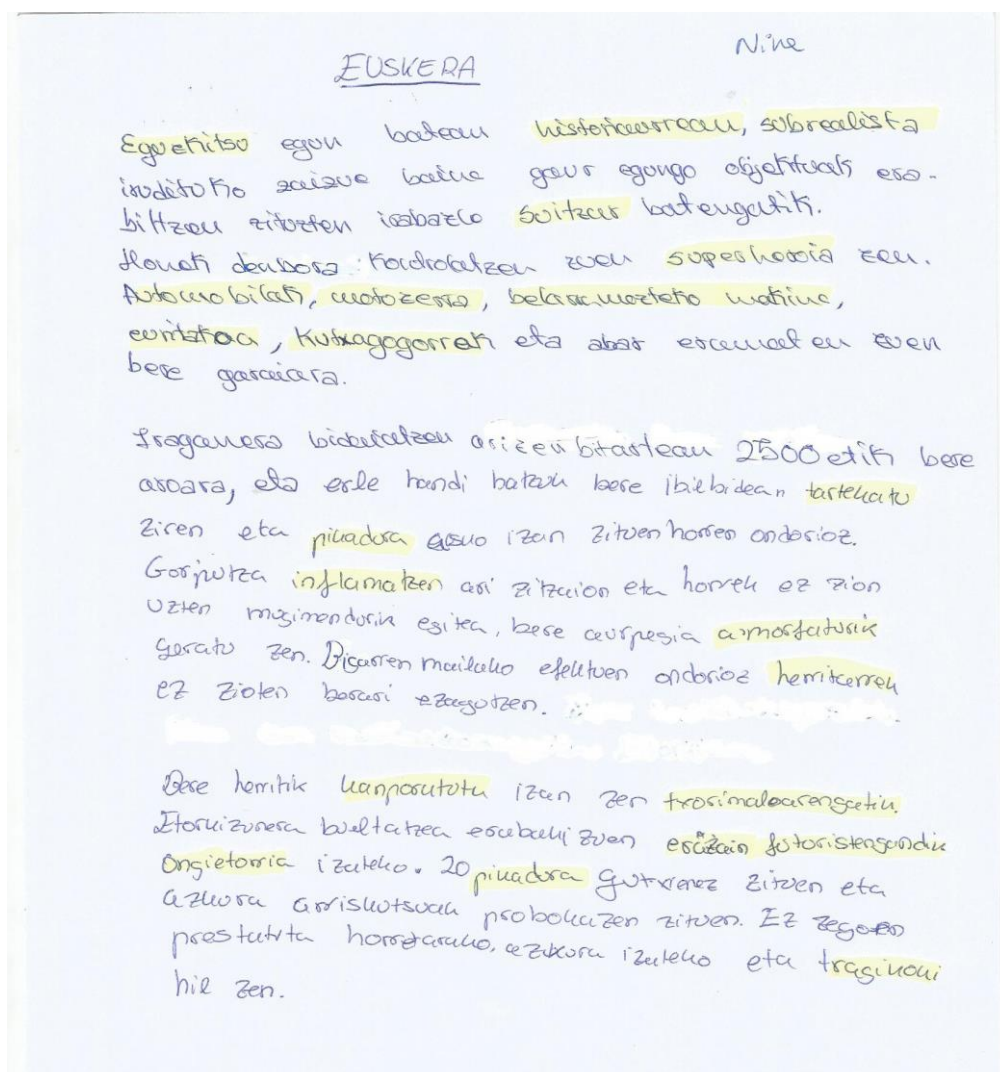 Nine
EUSKERA
Eguekitso egun batean historiaurrean, subrealista
irudituko zaizue baina gaur egungo objektuak era-
biltzen zituzten irabazle suitzar batengatik.
Honek denbora kordrolatzen zuen superheroia zen.
Automobilak, motozerra, belarmozteko makina,
euritakoa, Kutxagogorrak eta abar eramaten zuen
bere garaiara.
Iraganera bideratzen ari zen bitartean 2500etik bere
aroara, eta erle handi batzuk bere ibilbidean tartekatu
ziren eta pikadura asko izan zituen horren ondorioz.
Gorputza inflamatzen ari zitzaion eta horrek ez zion
uzten mugimendurik egitea, bere aurpegia amorfaturik
geratu zen. Bigarren mailako efektuen ondorioz herritarrek
ez zioten berari ezagutzen.
Bere herritik kanporatuta izan zen txorimaloarengatik.
Etorkizunera bueltatzea erabaki zuen erizain futuristengandik
ongietorria izateko. 20 pikadura gutxienez zituen eta
azkura arriskutsuak probokazen zituen. Ez zegoen
prestatuta horretarako, azkura izateko eta tragikoki
hil zen.